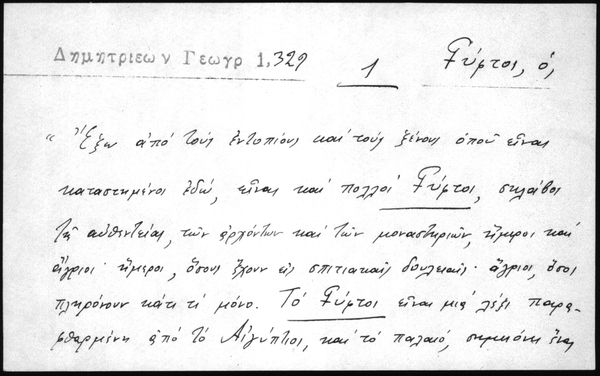 Δημητριεων Γεωγρ 1,329 1 Γύφτοι, ὁ,
"Ἔξω ἀπό τούς ἐντοπίους καί τούς ξένους ὁποῦ εἶναι
καταστημένοι ἐδώ, εἶναι καί πολλοί Γύφτοι, σκλάβοι
τῆς αὐθεντείας, τῶν ἀρχόντων καί τῶν μοναστηριῶν, ἥμεροι καί
ἄγριοι· ἥμεροι, ὅσους ἔχουν εἰς σπιτιακαίς δουλειαίς· ἄγριοι, ὅσοι
πληρόνουν κάτι τί μόνο. Τό Γύφτοι εἶναι μιά λέξι παρε-
φθαρμένη ἀπό τό Αἰγύπτιοι, καί τό παλαιό, σημαίνει ἕνας